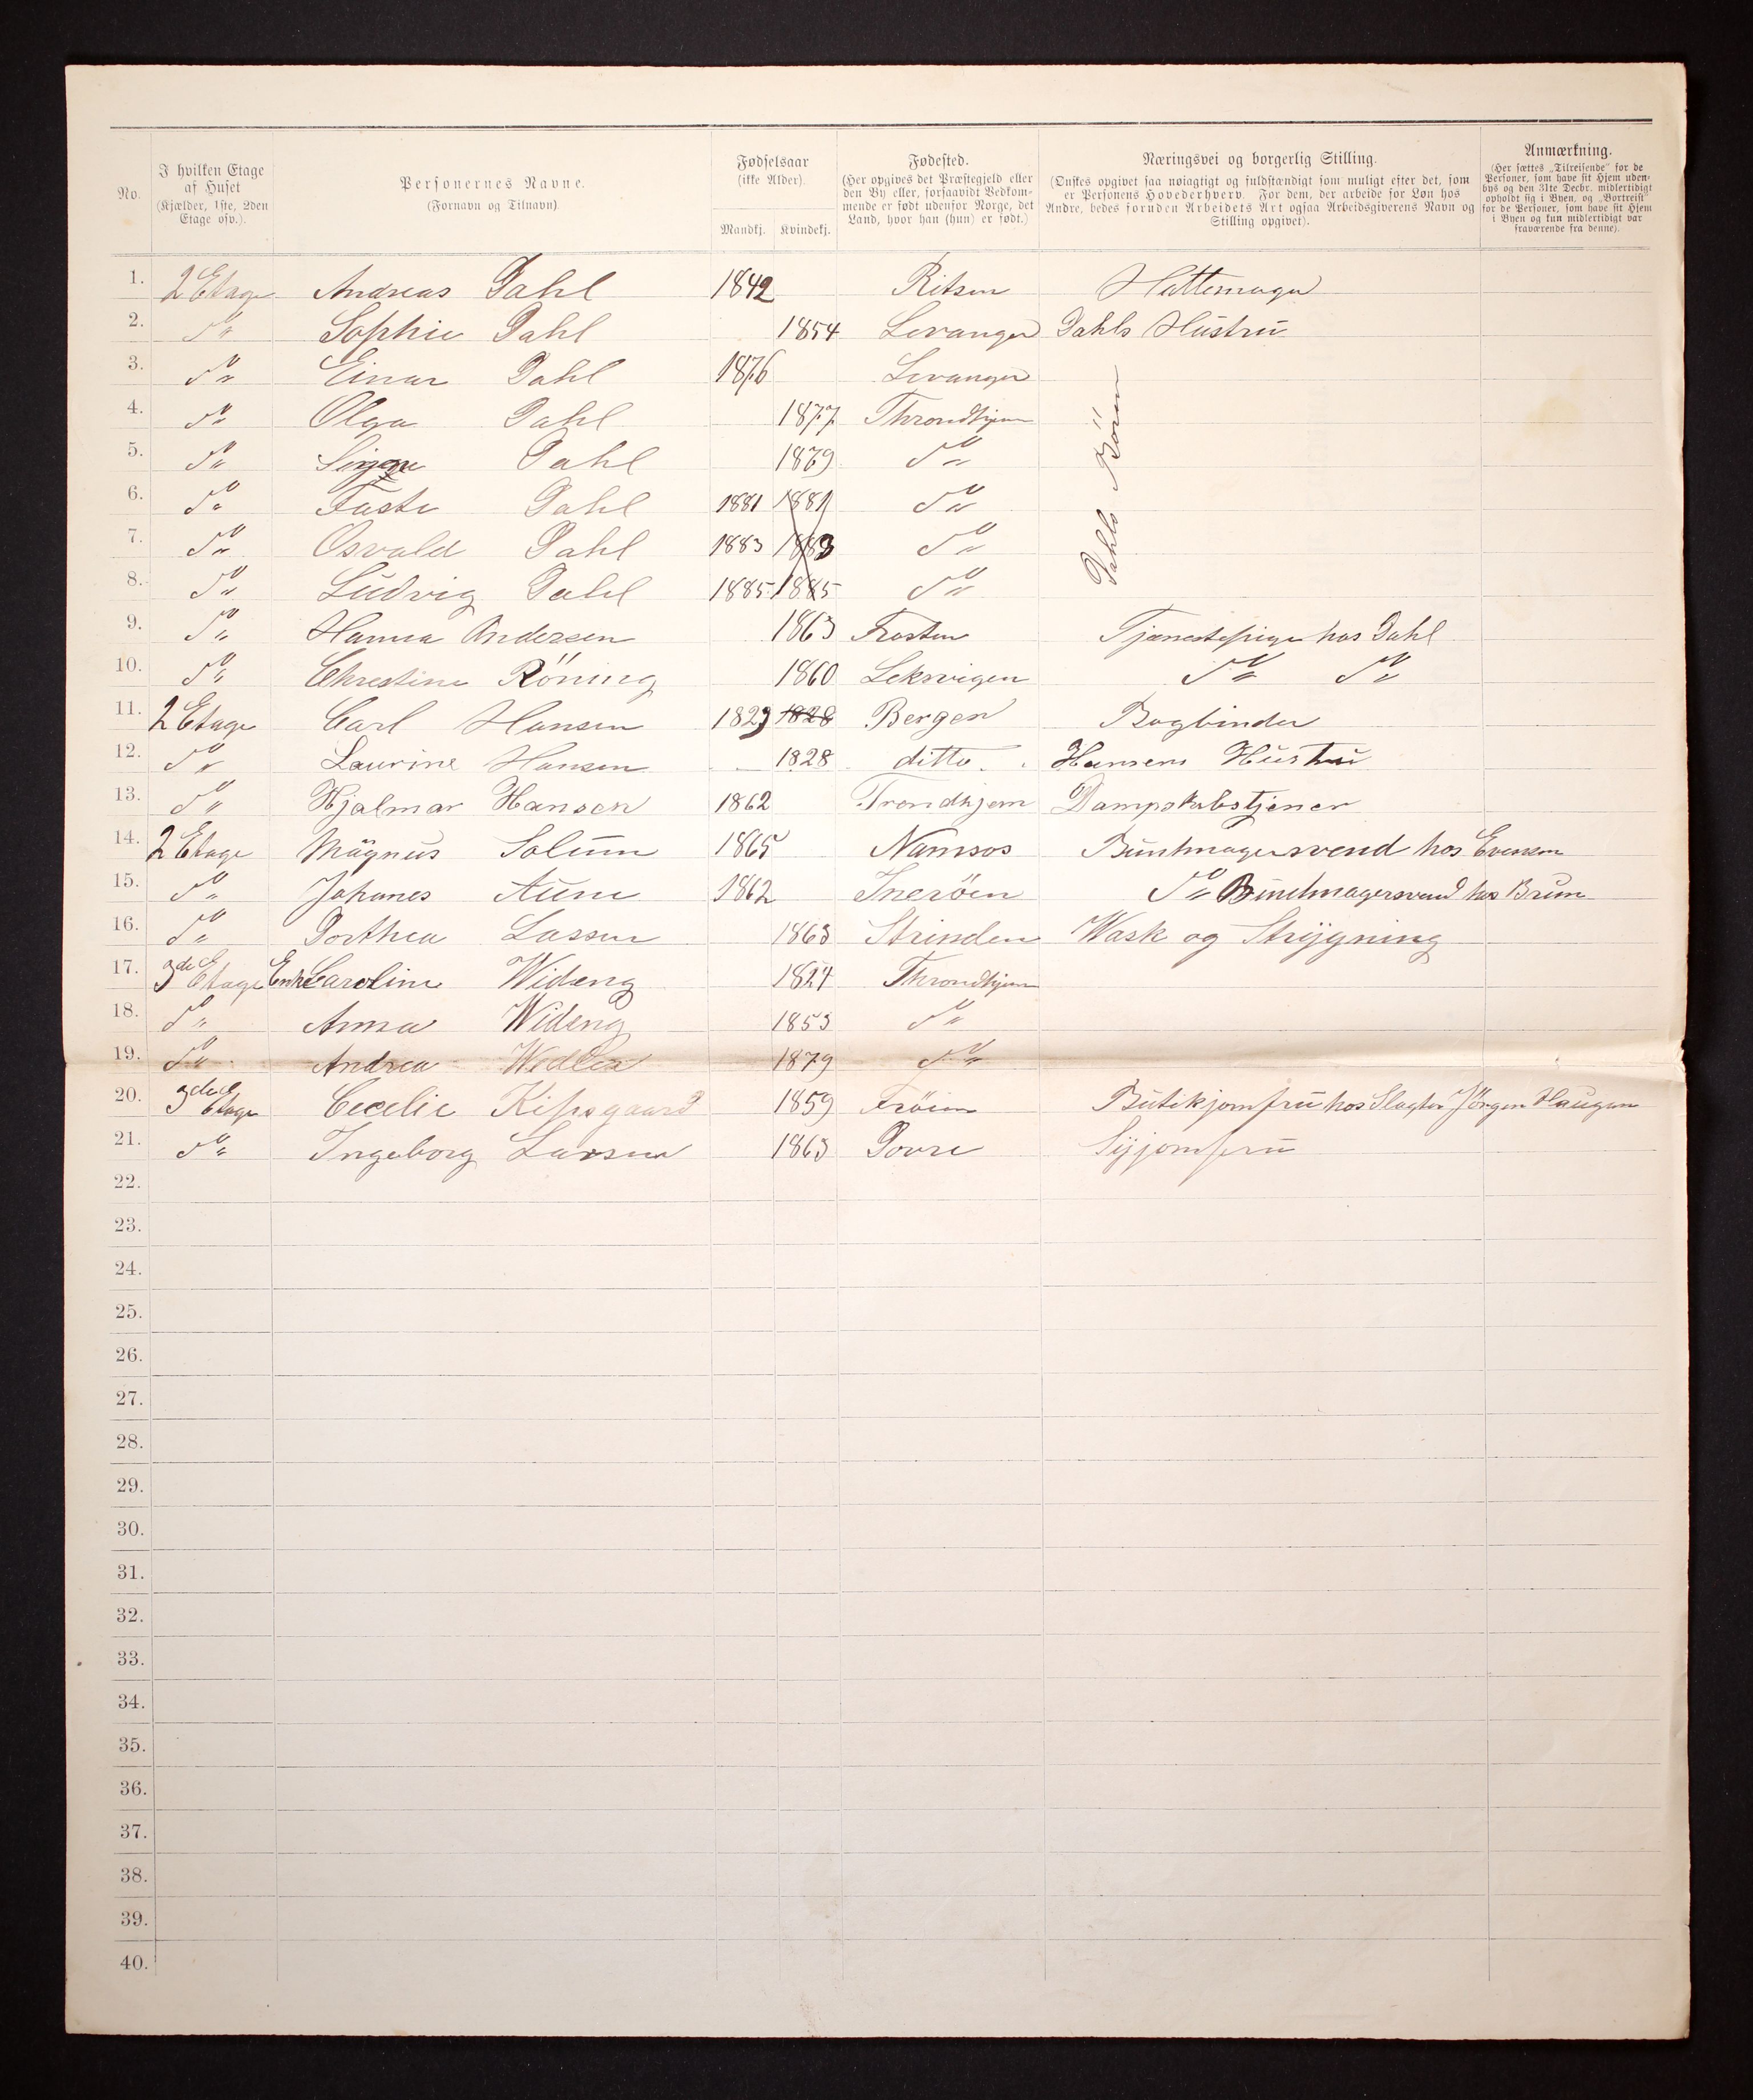 No.
I hvilken Etage
af Huset
(Kjælder, 1ste, 2den
Etage osv.).
Personernes Navne.
(Fornavn og Tilnavn).
Fødselsaar
(ikke Alder).
Mandkj. Kvindekj.
Fødested.
(Her opgives det Præstegjeld eller
den By eller, forsaavidt Vedkom-
mende er født udenfor Norge, det
Land, hvor han (hun) er født.)
Næringsvei og borgerlig Stilling.
(Ønskes opgivet saa nøiagtigt og fuldstændigt som muligt efter det, som
er Personens Hovederhverv. For dem, der arbeide for Løn hos
Andre, bedes foruden Arbeidets Art ogsaa Arbeidsgiverens Navn og
Stilling opgivet).
Anmærkning.
(Her sættes „Tilreisende" for de
Personer, som have sit Hjem uden-
bys og den 31te Decbr. midlertidigt
opholdt sig i Byen, og „Bortreist"
for de Personer, som have sit Hjem
i Byen og kun midlertidigt var
fraværende fra denne).
1. 2 Etage Andreas Dahl 1842 Ritsen Hattemager
2. Do Sophie Dahl 1854 Levanger Dahls Hustru
3. Do Einar Dahl 1876 Levanger
4. Do Olga Dahl 1877 Throndhjem
Dahls Börn
5. Do Dahl 1879 Do
6. Do Dahl 1881 1881 Do
7. Do Osvald Dahl 1883 1883 Do
8. Do Ludvig Dahl 1885 1885 Do
9. Do Hanna Andersen 1863 Frosten Tjenestepige hos Dahl
10. Do Chrestine Röning 1860 Leksvigen Do Do
11. 2 Etage Carl Hansen 1823 1828 Bergen Bogbinder
12. Do Laurine Hansen 1828 ditto Hansens Hustru
13. Do Hjalmar Hansen 1862 Trondhjem Dampskibstjener
14. 2 Etage Magnus Solum 1865 Namsos Buntmagersvend hos Evensen
15. Do Johanes Aune 1862 Ineröen Do Buntmagersvend hos Brun
16. Do Dorthea Lassen 1863 Strinden Wask og Strygning
17. 3de Etage Enke Caroline Wideng 1824 Throndhjem
18. Do Anna Wideng 1853 Do
19. Do Andrea 1879 Do
20. 3de Etage Cecelie 1859 Fröien Butikjomfru hos Slagter Jörgen Haugen
21. Do Ingeborg Larsen 1863 Dovre Syjomfru
22.
23.
24.
25.
26.
27.
28.
29.
30.
31.
32.
33.
34.
35.
36.
37.
38.
39.
40.